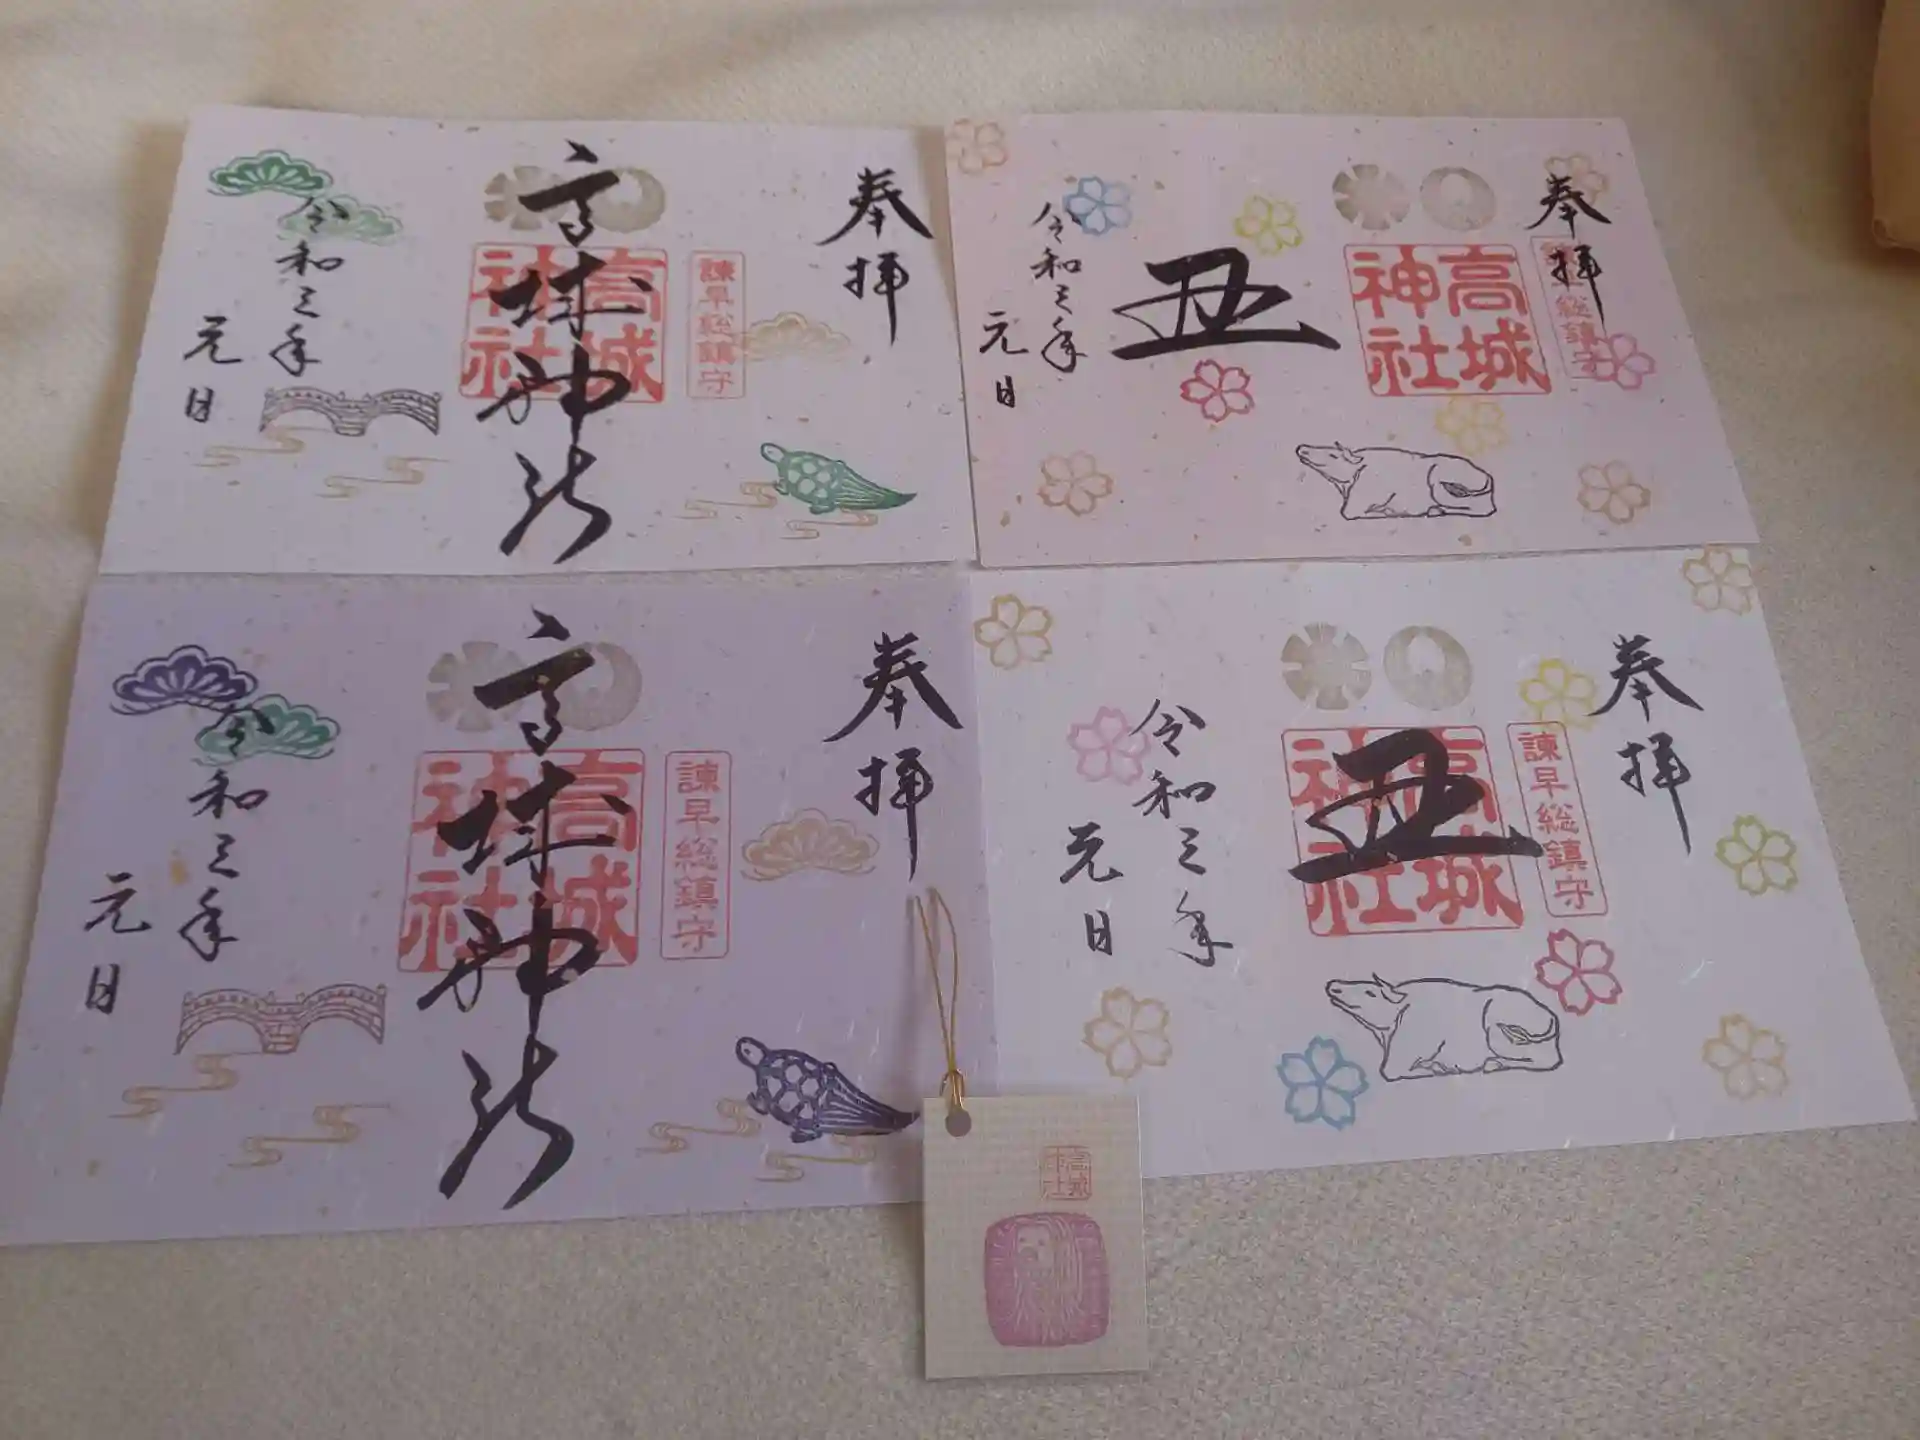 奉拝
諫早総鎮守
高城神社
高城神社
令和三年
元日
奉拝
諫早総鎮守
高城神社
丑
令和三年
元日
奉拝
諫早総鎮守
高城神社
高城神社
令和三年
元日
奉拝
諫早総鎮守
高城神社
丑
令和三年
元日
高城神社